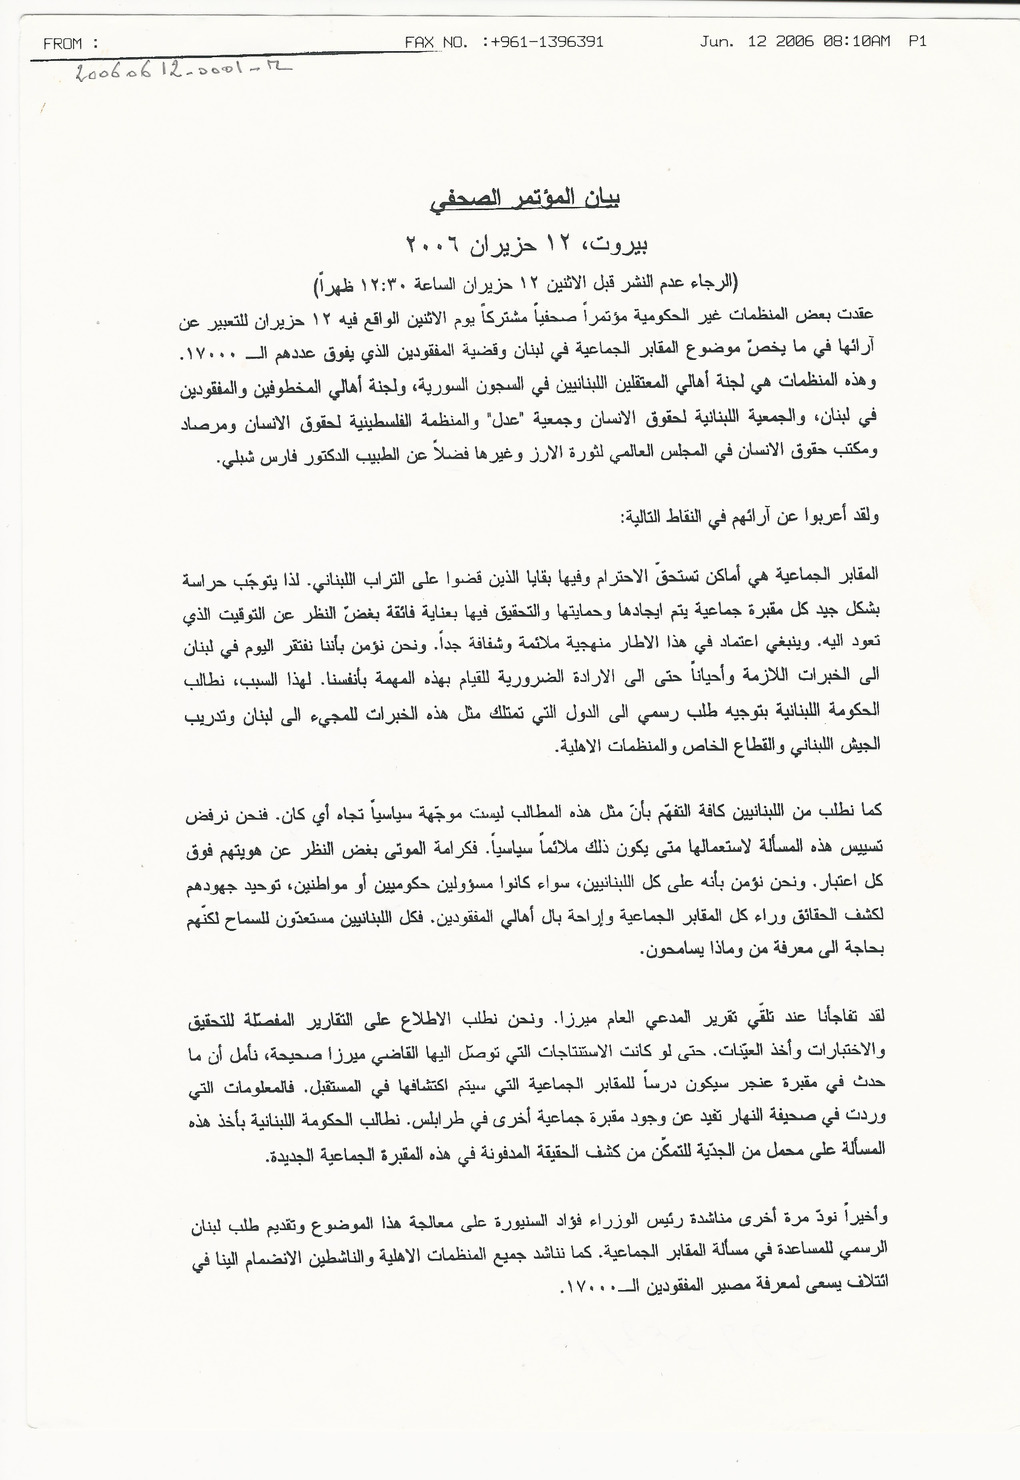 FROM : FAX NO. :+961-1396391 Jun. 12 2006 08:10AM P1
20060612-0001-M
بيان المؤتمر الصحفي
بيروت، ١٢ حزيران ٢٠٠٦
(الرجاء عدم النشر قبل الاثنين ١٢ حزيران الساعة ١٢:٣٠ ظهراً)
عقدت بعض المنظمات غير الحكومية مؤتمراً صحفياً مشتركاً يوم الاثنين الواقع فيه ١٢ حزيران للتعبير عن
آرائها في ما يخصّ موضوع المقابر الجماعية في لبنان وقضية المفقودين الذي يفوق عددهم الـ ١٧٠٠٠.
وهذه المنظمات هي لجنة أهالي المعتقلين اللبنانيين في السجون السورية، ولجنة أهالي المخطوفين والمفقودين
في لبنان، والجمعية اللبنانية لحقوق الانسان وجمعية "عدل" والمنظمة الفلسطينية لحقوق الانسان ومرصاد
ومكتب حقوق الانسان في المجلس العالمي لثورة الارز وغيرها فضلاً عن الطبيب الدكتور فارس شبلي.
ولقد أعربوا عن آرائهم في النقاط التالية:
المقابر الجماعية هي أماكن تستحقّ الاحترام وفيها بقايا الذين قضوا على التراب اللبناني. لذا يتوجّب حراسة
بشكل جيد كل مقبرة جماعية يتم ايجادها وحمايتها والتحقيق فيها بعناية فائقة بغضّ النظر عن التوقيت الذي
تعود اليه. وينبغي اعتماد في هذا الاطار منهجية ملائمة وشفافة جداً. ونحن نؤمن بأننا نفتقر اليوم في لبنان
الى الخبرات اللازمة وأحياناً حتى الى الارادة الضرورية للقيام بهذه المهمة بأنفسنا. لهذا السبب، نطالب
الحكومة اللبنانية بتوجيه طلب رسمي الى الدول التي تمتلك مثل هذه الخبرات للمجيء الى لبنان وتدريب
الجيش اللبناني والقطاع الخاص والمنظمات الاهلية.
كما نطلب من اللبنانيين كافة التفهّم بأنّ مثل هذه المطالب ليست موجّهة سياسياً تجاه أي كان. فنحن نرفض
تسييس هذه المسألة لاستعمالها متى يكون ذلك ملائماً سياسياً. فكرامة الموتى بغض النظر عن هويتهم فوق
كل اعتبار. ونحن نؤمن بأنه على كل اللبنانيين، سواء كانوا مسؤولين حكوميين أو مواطنين، توحيد جهودهم
لكشف الحقائق وراء كل المقابر الجماعية وإراحة بال أهالي المفقودين. فكل اللبنانيين مستعدّون للسماح لكنّهم
بحاجة الى معرفة من وماذا يسامحون.
لقد تفاجأنا عند تلقّي تقرير المدعي العام ميرزا. ونحن نطلب الاطلاع على التقارير المفصّلة للتحقيق
والاختبارات وأخذ العيّنات. حتى لو كانت الاستنتاجات التي توصّل اليها القاضي ميرزا صحيحة، نأمل أن ما
حدث في مقبرة عنجر سيكون درساً للمقابر الجماعية التي سيتم اكتشافها في المستقبل. فالمعلومات التي
وردت في صحيفة النهار تفيد عن وجود مقبرة جماعية أخرى في طرابلس. نطالب الحكومة اللبنانية بأخذ هذه
المسألة على محمل من الجدّية للتمكّن من كشف الحقيقة المدفونة في هذه المقبرة الجماعية الجديدة.
وأخيراً نودّ مرة أخرى مناشدة رئيس الوزراء فؤاد السنيورة على معالجة هذا الموضوع وتقديم طلب لبنان
الرسمي للمساعدة في مسألة المقابر الجماعية. كما نناشد جميع المنظمات الاهلية والناشطين الانضمام الينا في
ائتلاف يسعى لمعرفة مصير المفقودين الـ١٧٠٠٠.